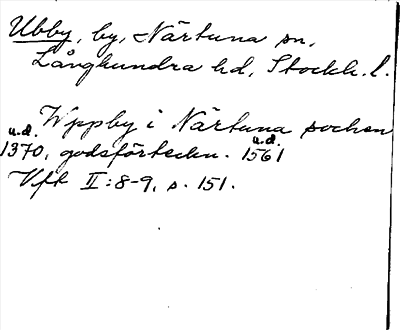 Ubby, by, Närtuna sn,
Långhundra hd, Stockh. l.
Wppby i Närtuna sochen
u.d. u.d.
1370, godsförteckn. 1561
Vft II:8-9, s. 151.